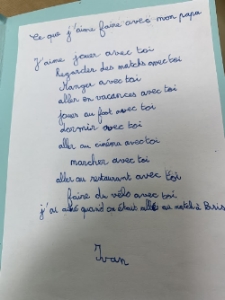 Ce que j'aime faire avec mon papa
J'aime jouer avec toi
Regarder des matchs avec toi
Manger avec toi
aller en vacances avec toi
jouer au foot avec toi
dormir avec toi
aller au cinéma avec toi
marcher avec toi
aller au restaurant avec toi
faire du vélo avec toi
j'ai aimé quand on était allé au hotel à
Ivan